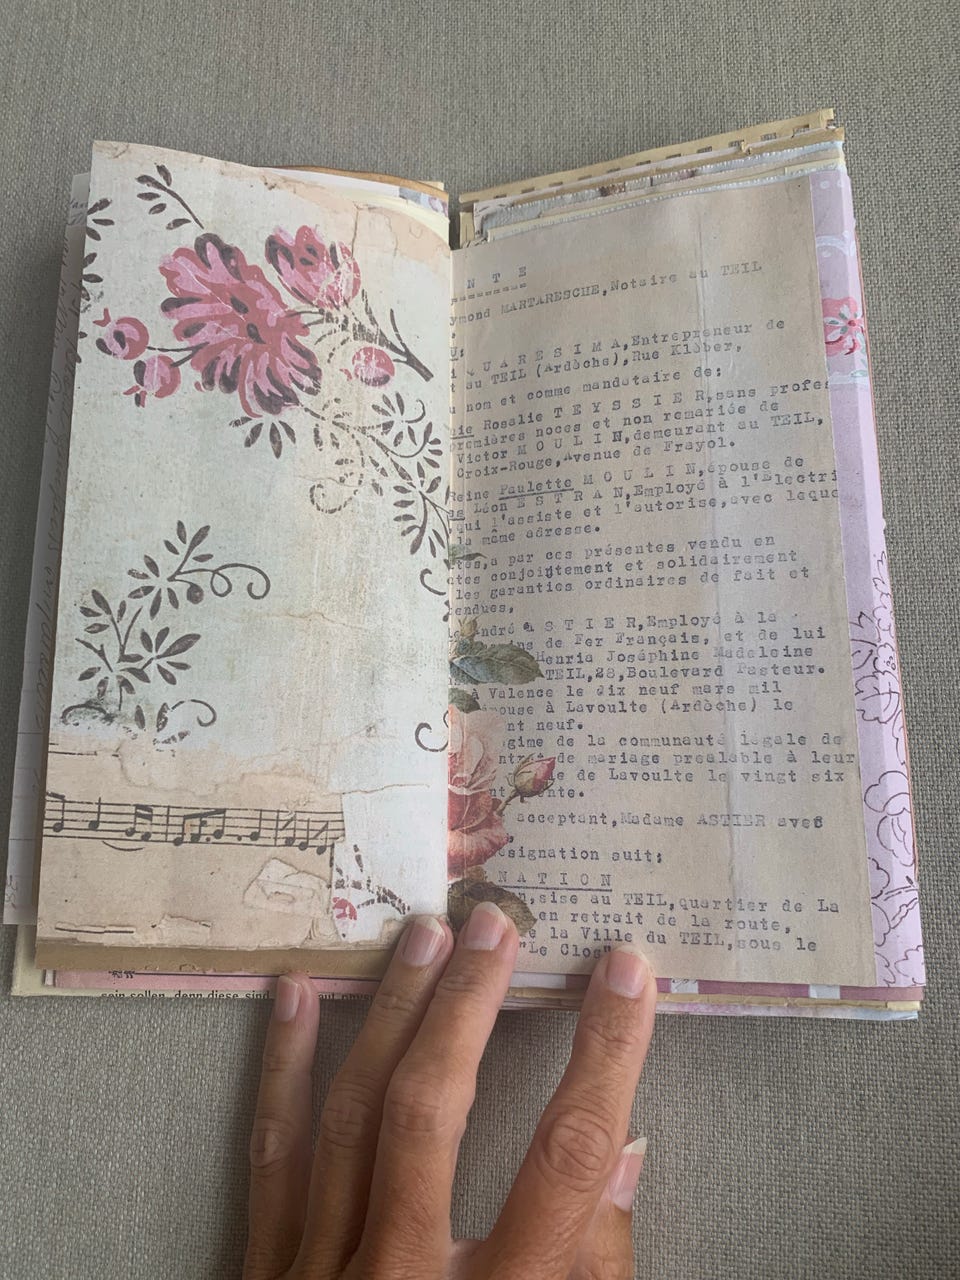 N T E
ymond MARTARESCHE,Notaire au TEIL
Q U A R E S I M A,Entrepreneur de
t au TEIL (Ardèche),Rue Kléber,
u nom et comme mandataire de:
nie Rosalie T E Y S S I E R,sans profes
premières noces et non remariée de
Victor M O U L I N,demeurant au TEIL,
Croix-Rouge,Avenue de Frayol.
Reine Paulette M O U L I N,épouse de
Léon E S T R A N,Employé à l'Electri
qui l'assiste et l'autorise,avec leque
la même adresse.
tes,a par ces présentes vendu en
tes conjointement et solidairement
les garanties ordinaires de fait et
endues,
André A S T I E R,Employé à la
ins de Fer Français, et de lui
Henria Joséphine Madeleine
TEIL,28,Boulevard Pasteur.
à Valence le dix neuf mars mil
pouse à Lavoulte (Ardèche) le
nt neuf.
gime de la communauté légale de
ntrat de mariage préalable à leur
ie de Lavoulte le vingt six
nte.
acceptant,Madame ASTIER avec
ésignation suit;
N A T I O N
n,sise au TEIL,quartier de La
en retrait de la route,
e la Ville du TEIL,sous le
"Le Clos"
sein sollen, denn diese sind